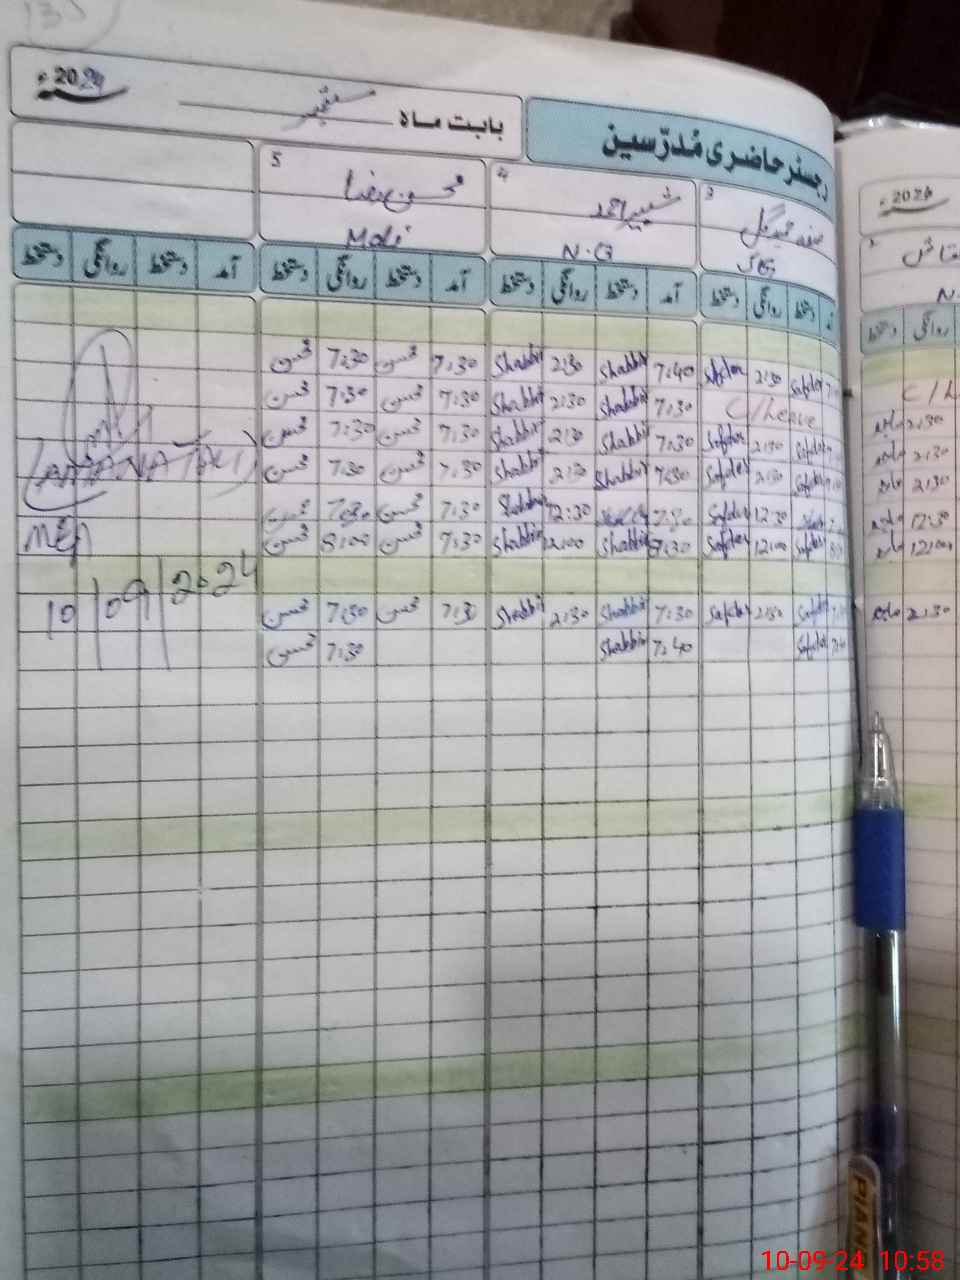 رجسٹر حاضری مُدرّسین
بابت ماہ ستمبر 2024ء
3
4 شبیر احمد
N.Q
5 محسن رضا
Mali
آمد دستخط روانگی دستخط آمد دستخط روانگی دستخط آمد دستخط روانگی دستخط
Safder 2:30 Safder Shabbir 2:30 Shabbir 7:40 محسن 7:30 محسن 7:30
C/Leave Shabbir 2:30 Shabbir 7:30 محسن 7:30 محسن 7:30
Safder 2:30 Safder Shabbir 2:30 Shabbir 7:30 محسن 7:30 محسن 7:30
Safder 2:30 Safder Shabbir 2:30 Shabbir 7:30 محسن 7:30 محسن 7:30
Safder 12:30 Shabbir 12:30 7:30 محسن 7:30 محسن 7:30
Safder 12:00 Safder Shabbir 12:00 Shabbir 7:30 محسن 8:00 محسن 7:30
Safder 2:30 Safder Shabbir 2:30 Shabbir 7:30 محسن 7:30 محسن 7:30
Safder Shabbir 7:40 محسن 7:30
(AMANAT ALI)
MEA
10/09/2024
2024ء
دستخط روانگی
C/L
ماجد 2:30
ماجد 2:30
ماجد 2:30
ماجد 12:30
ماجد 12:00
ماجد 2:30
PIAN
10-09-24 10:58